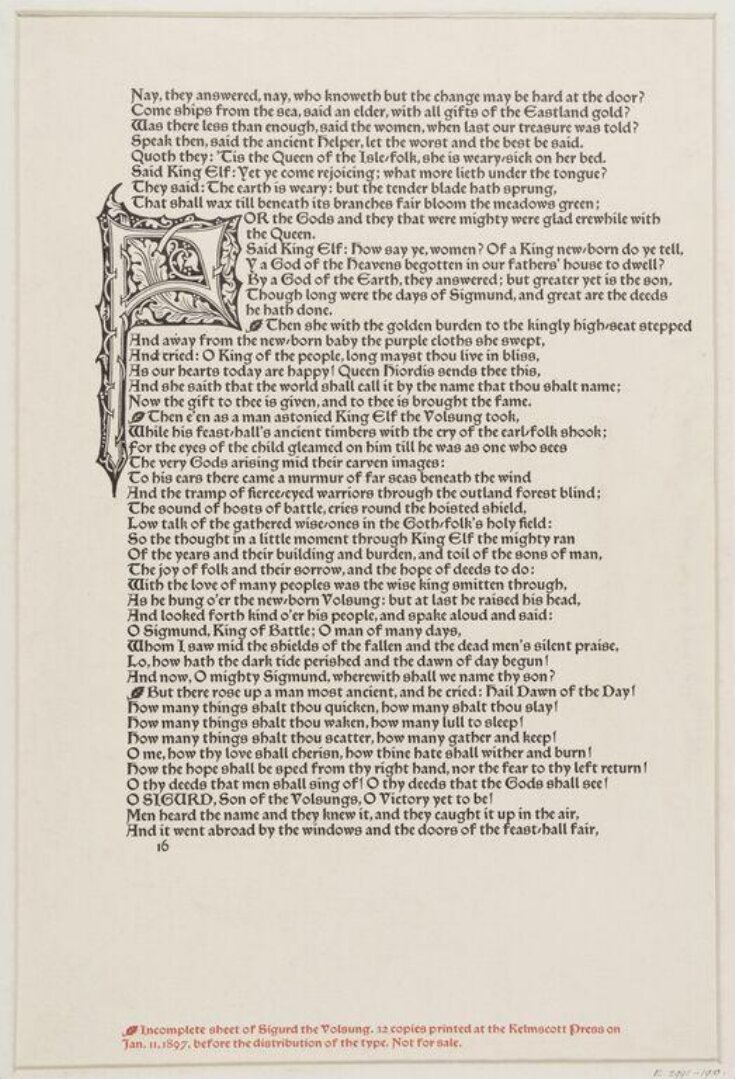 Nay, they answered, nay, who knoweth but the change may be hard at the door?
Come ships from the sea, said an elder, with all gifts of the Eastland gold?
Was there less than enough, said the women, when last our treasure was told?
Speak then, said the ancient Helper, let the worst and the best be said.
Quoth they: 'Tis the Queen of the Isle-folk, she is weary-sick on her bed.
Said King Elf: Yet ye come rejoicing; what more lieth under the tongue?
They said: The earth is weary: but the tender blade hath sprung,
That shall wax till beneath its branches fair bloom the meadows green;
FOR the Gods and they that were mighty were glad erewhile with
the Queen.
Said King Elf: How say ye, women? Of a King new-born do ye tell,
Y a God of the Heavens begotten in our fathers' house to dwell?
By a God of the Earth, they answered; but greater yet is the son,
Though long were the days of Sigmund, and great are the deeds
he hath done.
Then she with the golden burden to the kingly high-seat stepped
And away from the new-born baby the purple cloths she swept,
And cried: O King of the people, long mayst thou live in bliss,
As our hearts today are happy! Queen Hiordis sends thee this,
And she saith that the world shall call it by the name that thou shalt name;
Now the gift to thee is given, and to thee is brought the fame.
Then e'en as a man astonied King Elf the Volsung took,
While his feast-hall's ancient timbers with the cry of the earl-folk shook;
For the eyes of the child gleamed on him till he was as one who sees
The very Gods arising mid their carven images:
To his ears there came a murmur of far seas beneath the wind
And the tramp of fierce-eyed warriors through the outland forest blind;
The sound of hosts of battle, cries round the hoisted shield,
Low talk of the gathered wise-ones in the Goth-folk's holy field:
So the thought in a little moment through King Elf the mighty ran
Of the years and their building and burden, and toil of the sons of man,
The joy of folk and their sorrow, and the hope of deeds to do:
With the love of many peoples was the wise king smitten through,
As he hung o'er the new-born Volsung: but at last he raised his head,
And looked forth kind o'er his people, and spake aloud and said:
O Sigmund, King of Battle; O man of many days,
Whom I saw mid the shields of the fallen and the dead men's silent praise,
Lo, how hath the dark tide perished and the dawn of day begun!
And now, O mighty Sigmund, wherewith shall we name thy son?
But there rose up a man most ancient, and he cried: Hail Dawn of the Day!
How many things shalt thou quicken, how many shalt thou slay!
How many things shalt thou waken, how many lull to sleep!
How many things shalt thou scatter, how many gather and keep!
O me, how thy love shall cherish, how thine hate shall wither and burn!
How the hope shall be sped from thy right hand, nor the fear to thy left return!
O thy deeds that men shall sing of! O thy deeds that the Gods shall see!
O SIGURD, Son of the Volsungs, O Victory yet to be!
Men heard the name and they knew it, and they caught it up in the air,
And it went abroad by the windows and the doors of the feast-hall fair,
16
Incomplete sheet of Sigurd the Volsung. 32 copies printed at the Kelmscott Press on
Jan. 11, 1897, before the distribution of the type. Not for sale.